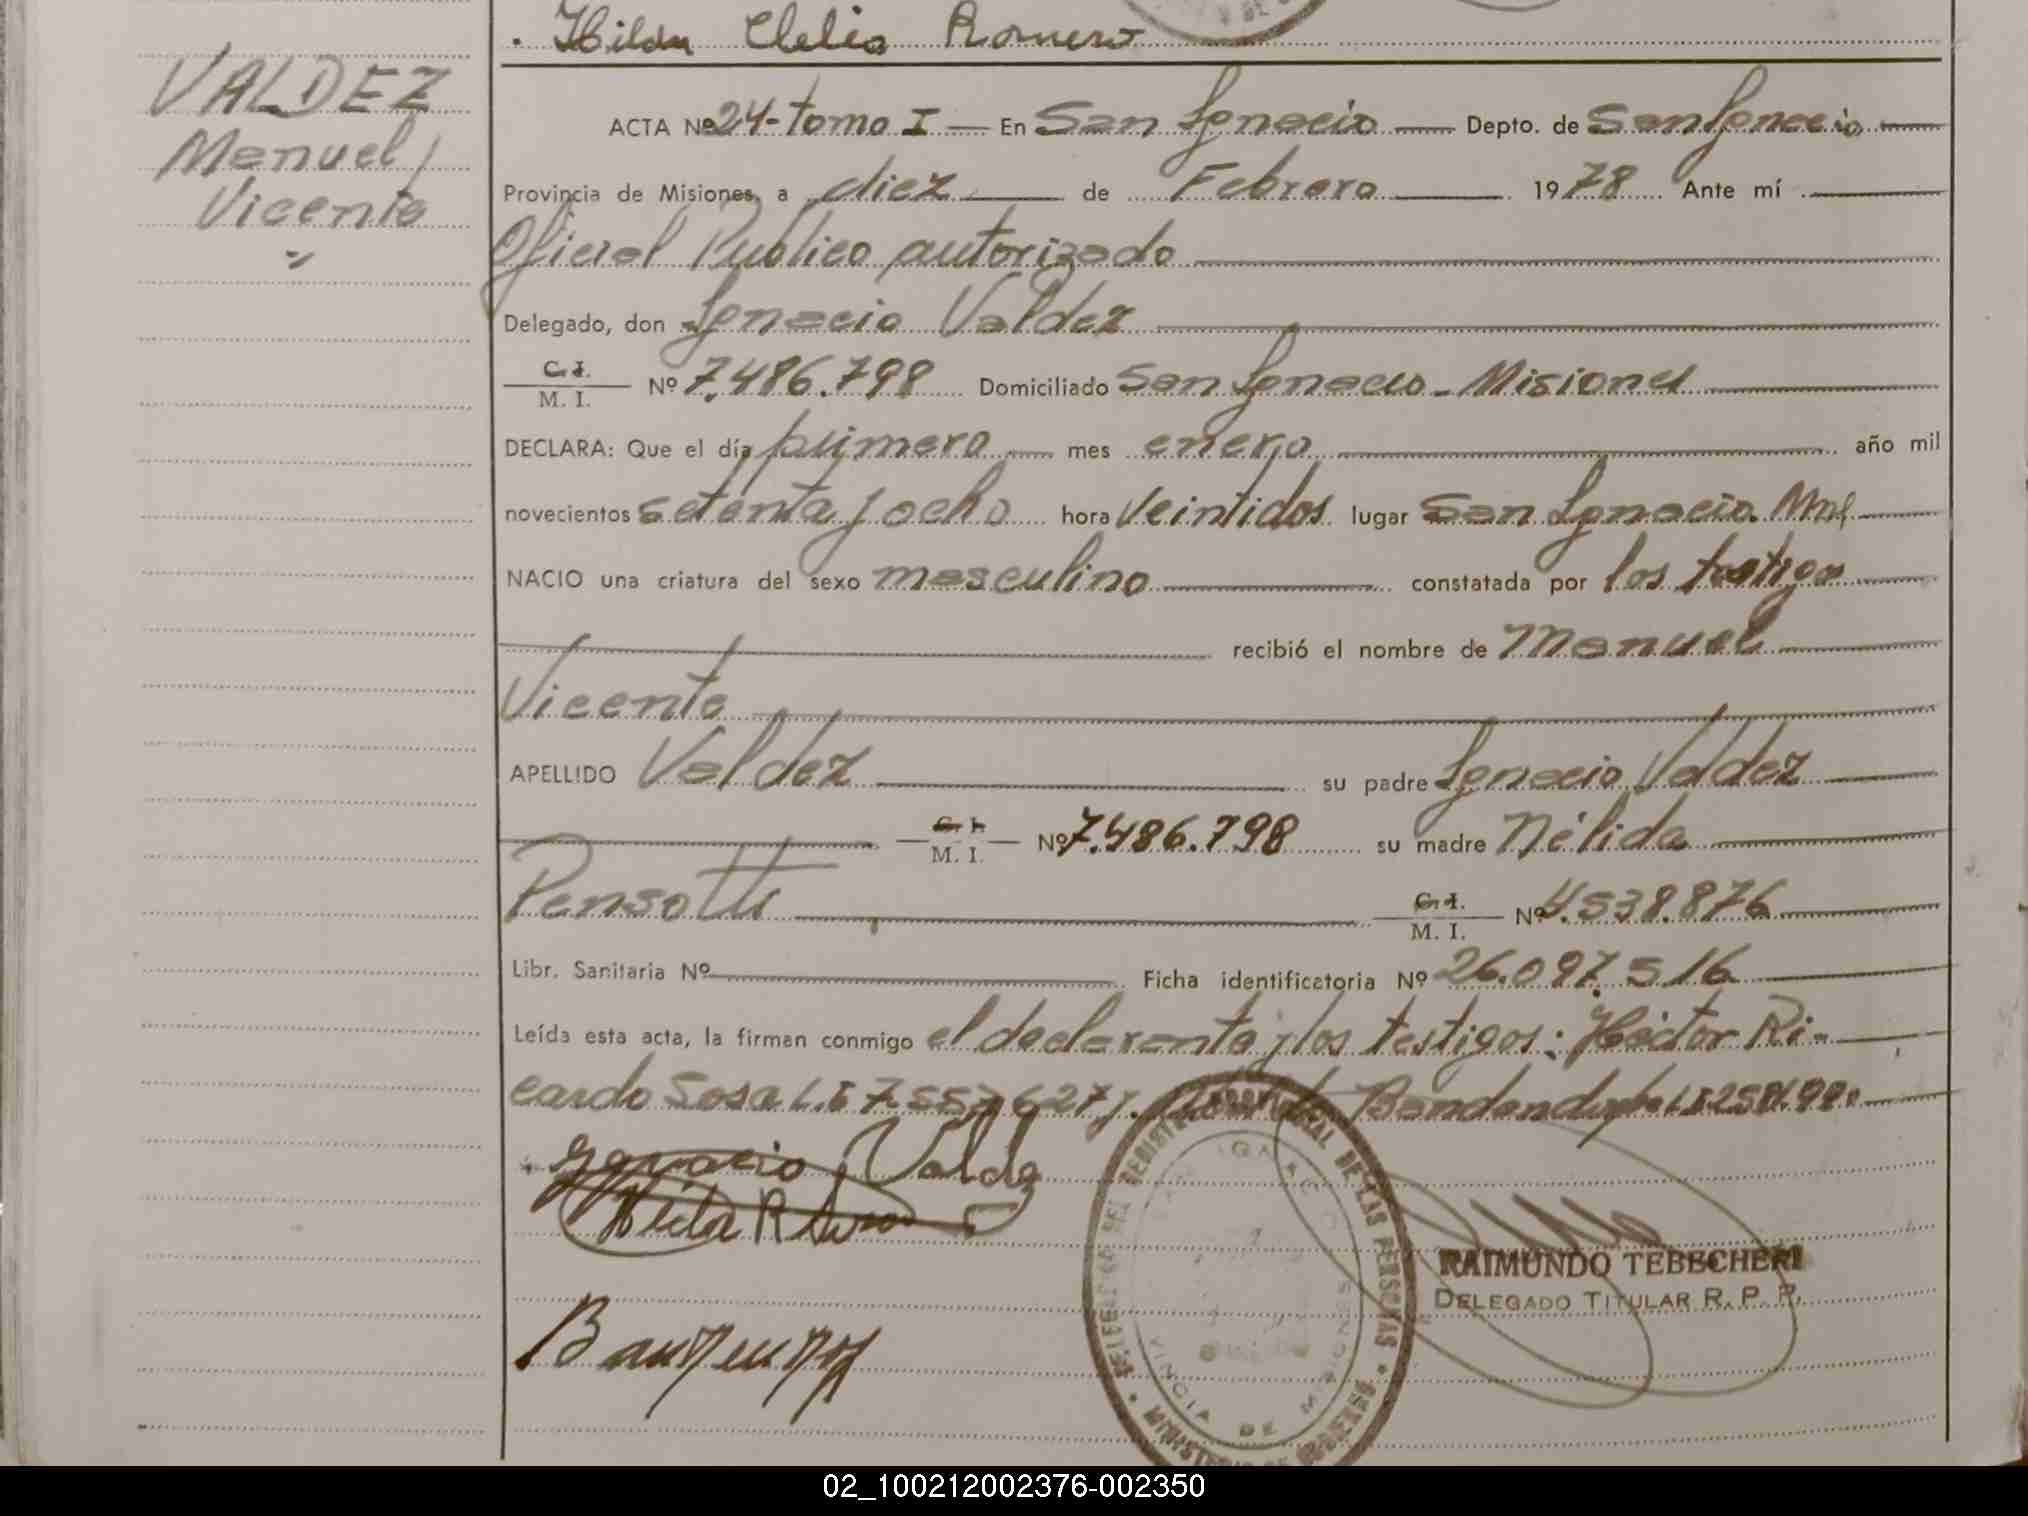 Hilda Clelia Romero
VALDEZ
Manuel
Vicente
ACTA Nº 24-tomo I — En San Ignacio — Depto. de San Ignacio
Provincia de Misiones, a diez de Febrero 1978 Ante mí
Oficial Publico autorizado
Delegado, don Ignacio Valdez
C. I.
M. I. Nº 7.486.798 Domiciliado San Ignacio - Misiones
DECLARA: Que el día primero mes enero año mil
novecientos setenta y ocho hora veintidos lugar San Ignacio. Mnes
NACIO una criatura del sexo masculino constatada por los testigos
recibió el nombre de Manuel
Vicente
APELLIDO Valdez su padre Ignacio Valdez
C. I.
M. I. Nº 7.486.798 su madre Nélida
Pensotti C. I.
M. I. Nº 4.538.876
Libr. Sanitaria Nº Ficha identificatoria Nº 26.097.516
Leída esta acta, la firman conmigo el declarante y los testigos: Héctor Ri-
cardo Sosa L.E 7.557.627 y
Ignacio Valdez
RAIMUNDO TEBECHERI
DELEGADO TITULAR R. P. P.
PROVINCIA DE MISIONES
MINISTERIO DE GOBIERNO
02_100212002376-002350